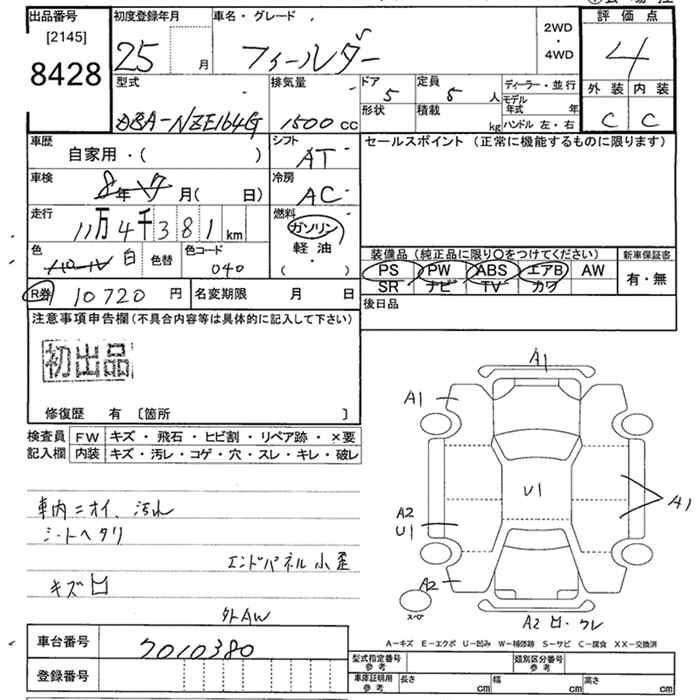 出品番号 初度登録年月 車名・グレード 2WD・4WD 評価点
[2145]
8428
25 月 フィールダー 4
型式 排気量 ドア 5 定員 5 人 ディーラー・並行 外装 内装
DBA-NZE164G 1500 cc 形状 積載 kg モデル年式 年 C C
ハンドル 左・右
車歴 自家用・( ) シフト AT セールスポイント (正常に機能するものに限ります)
車検 年 月( 日) 冷房 AC
走行 11万4千381 km 燃料 ガソリン 軽油 ( )
色 白 色替 色コード 040
装備品 (純正品に限り〇をつけてください) 新車保証書
PS PW ABS エアB AW 有・無
SR ナビ TV カワ
R券 10720 円 名変期限 月 日 後日品
注意事項申告欄(不具合内容等は具体的に記入して下さい)
初出品
修復歴 有 [箇所 ]
検査員 FW キズ・飛石・ヒビ割・リペア跡・×要
記入欄 内装 キズ・汚レ・コゲ・穴・スレ・キレ・破レ
車内ニオイ、汚れ
シートヘタリ
エンドパネル小歪
キズ凹
外AW
A1
A1
U1
A2
U1
A1
A2
スペア
A2 凹・ワレ
A-キズ E-エクボ U-凹み W-補修跡 S-サビ C-腐食 XX-交換済
車台番号 7010380
登録番号
型式指定番号 参考 類別区分番号 参考
車庫証明用 参考 長さ cm 幅 cm 高さ cm